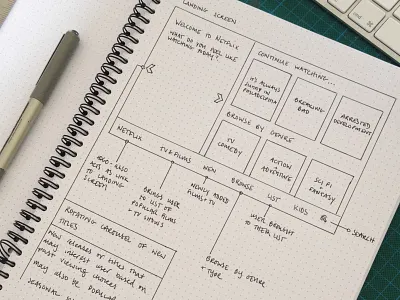 LANDING SCREEN
WELCOME TO NETFLIX
WHAT DO YOU FEEL LIKE
WATCHING TODAY?
CONTINUE WATCHING...
IT'S ALWAYS
SUNNY IN
PHILADELPHIA
BREAKING
BAD
ARRESTED
DEVELOPMENT
BROWSE BY GENRE
TV
COMEDY
ACTION
ADVENTURE
SCI FI
+
FANTASY
NETFLIX
TV & FILMS
NEW
BROWSE
LIST
KIDS
SEARCH
LOGO. ALSO
ACTS AS LINK
TO LANDING
SCREEN
BRINGS USER
TO LIST OF
POPULAR FILMS
+ TV SHOWS
NEWLY ADDED
FILMS + TV
USER BROUGHT
TO THEIR LIST
BROWSE BY GENRE
+ TYPE
ROTATING CAROUSEL OF NEW
TITLES
NEW RELEASES OR TITLES THAT
MAY INTEREST USER BASED ON
PAST VIEWING CHOICES
MAY ALSO BE POPULAR
SEASONAL